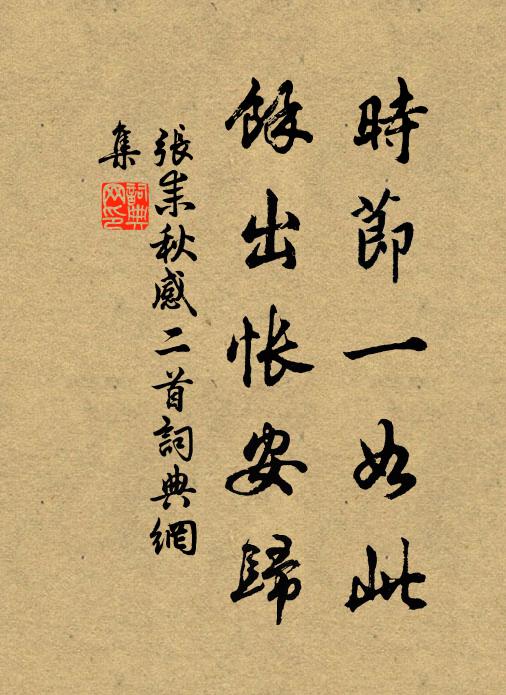 時節一如此
餘出悵安歸
張耒秋感二首詞典網
集
詞典
网印